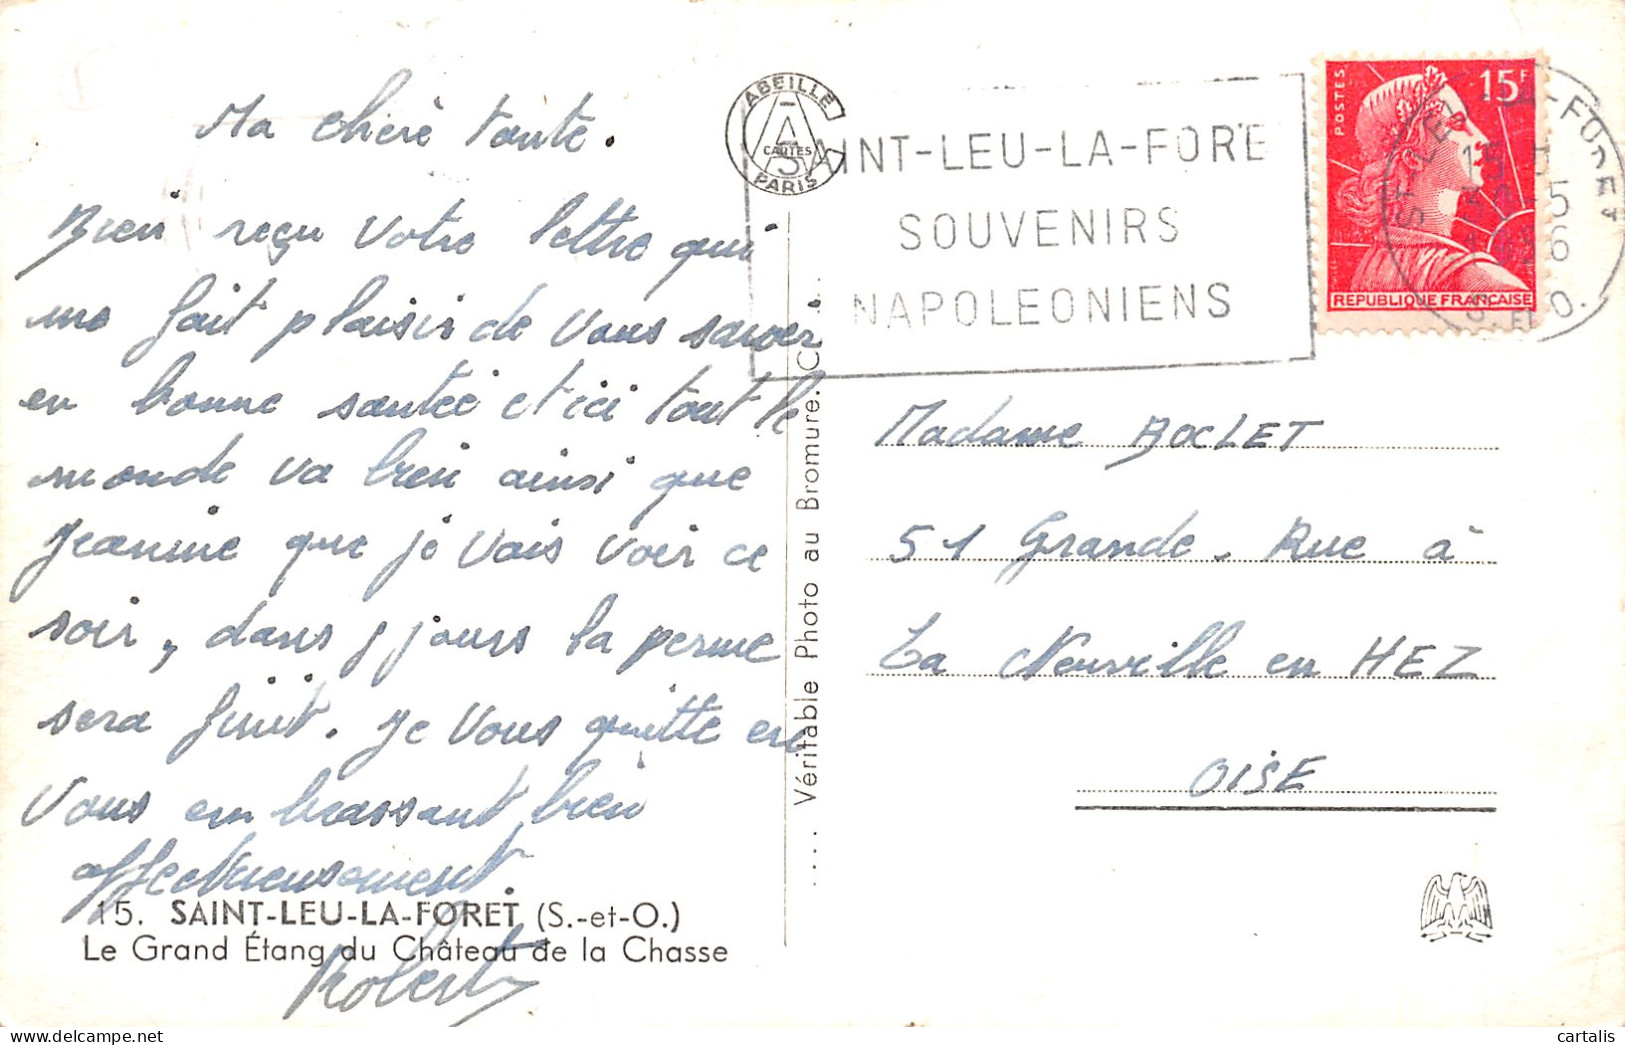 Ma chère tante.
Bien reçu votre lettre qui
me fait plaisir de vous savoir
en bonne santée et ici tout le
monde va bien ainsi que
Jeanine que je vais voir ce
soir, dans jours la perme
sera finit. Je vous quitte en
vous em brassant bien
affectueusement.
Robert
15. SAINT-LEU-LA-FORET (S.-et-O.)
Le Grand Étang du Château de la Chasse
ABEILLE
CARTES
PARIS
Véritable Photo au Bromure.
SAINT-LEU-LA-FORE
SOUVENIRS
NAPOLEONIENS
POSTES
15F
REPUBLIQUE FRANÇAISE
Madame BOCLET
51 Grande-Rue à
La Neuville en HEZ
OISE
cartalis